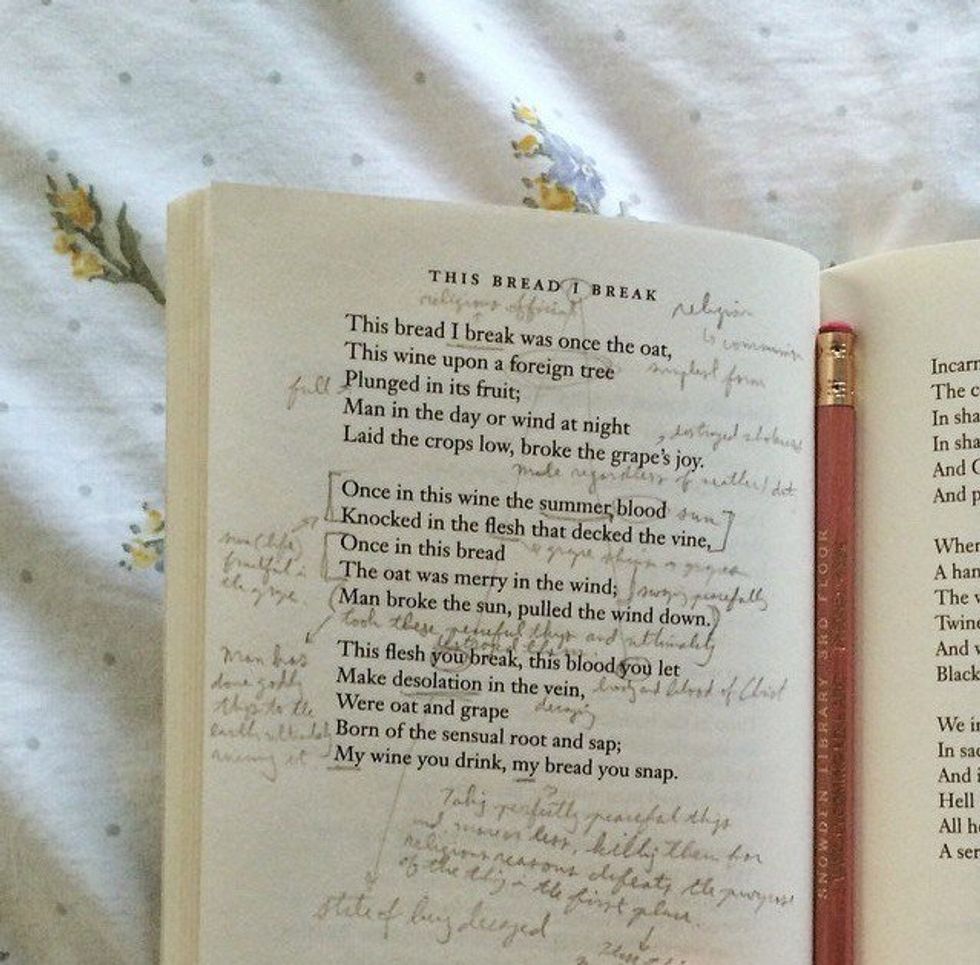 THIS BREAD I BREAK
religious officiant
religion
↳ communion
This bread I break was once the oat,
This wine upon a foreign tree
simplest form
full
Plunged in its fruit;
Man in the day or wind at night
destroyed
Laid the crops low, broke the grape's joy.
made regardless of
Once in this wine the summer blood
sun
Knocked in the flesh that decked the vine,
Once in this bread
The oat was merry in the wind;
swaying peacefully
Man broke the sun, pulled the wind down.
took these peaceful things and ultimately
fruitful
the grape
This flesh you break, this blood you let
Make desolation in the vein,
body and blood of Christ
decaying
Were oat and grape
Born of the sensual root and sap;
My wine you drink, my bread you snap.
Man has
done godly
things to the
earth
ruining it
Taking perfectly peaceful things
and killing them for
religious reasons defeats the purpose
of the thing in the first place.
state of being decayed
SNOWDEN LIBRARY 3RD FLOOR
Incarn
The c
In sha
In sha
And C
And p
When
A han
The v
Twine
And v
Black
We in
In sac
And i
Hell
All he
A ser